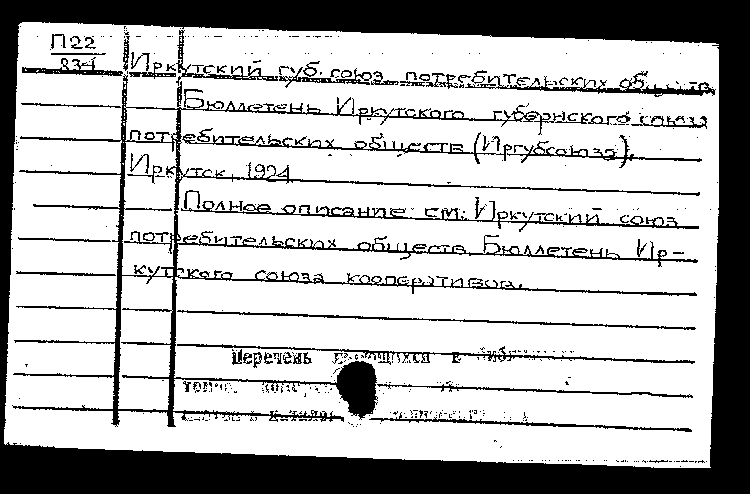 П22
834
Иркутский губ. союз потребительских обществ.
Бюллетень Иркутского губернского союза
потребительских обществ (Иргубсоюза).
Иркутск, 1924
Полное описание см: Иркутский союз
потребительских обществ. Бюллетень Ир-
кутского союза кооперативов.
Перечень имеющихся в